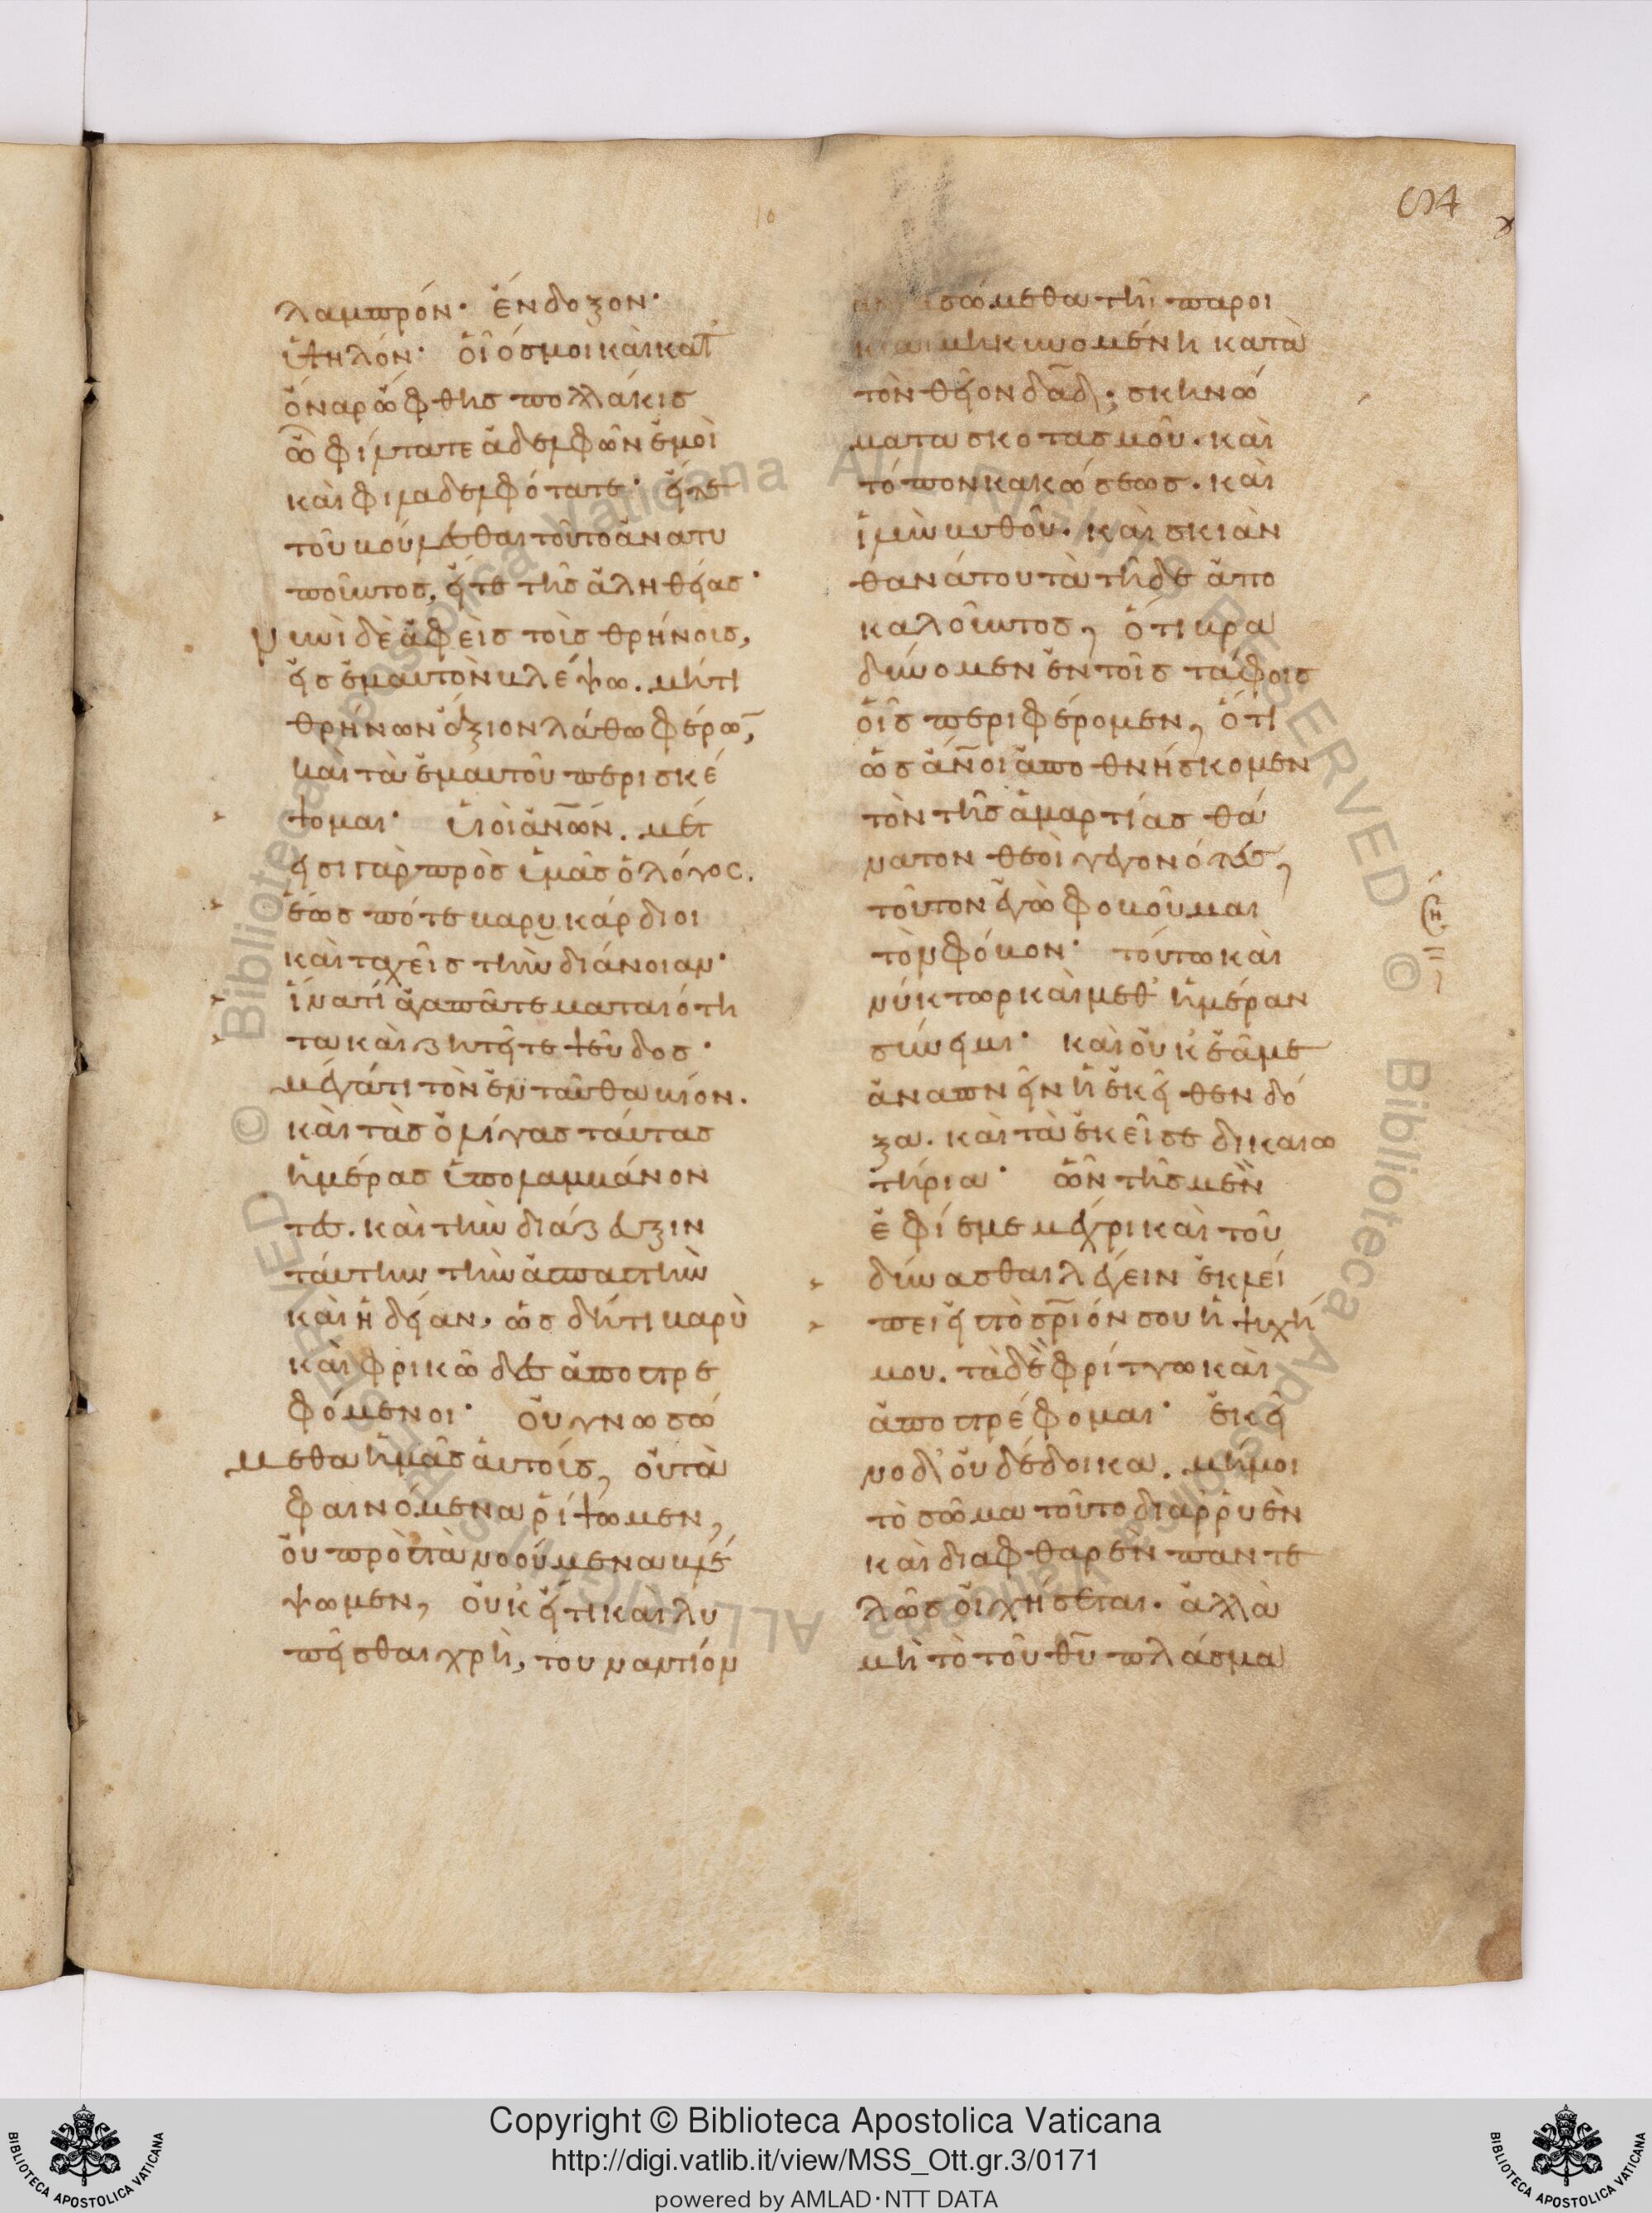 λαμπρόν· ἔνδοξον·
ὑψηλόν· οἷός μοι καὶ κατ'
ὄναρ ὤφθης πολλάκις
ὦ φίλτατε ἀδελφῶν ἐμοὶ
καὶ φιλαδελφότατε· εἴτε
τοῦ βούλεσθαι τοῦτο ἀνατυ
ποῦντος, εἴτε τῆς ἀληθείας·
νυνὶ δὲ ἀφεὶς τοῖς θρήνοις,
εἰς ἐμαυτὸν βλέψω. μή τι
θρήνων ἄξιον λάθω φέρω̅,
καὶ τὰ ἐμαυτοῦ περισκέ
ψομαι· υἱοὶ ἀν̅ων. μέτ
εισι γὰρ πρὸς ὑμᾶς ὁ λόγος.
ἕως πότε βαρυκάρδιοι
καὶ παχεῖς τὴν διάνοιαν·
ἱνατί ἀγαπᾶτε ματαιότη
τα καὶ ζητεῖτε ψεῦδος·
μέγά τι τὸν ἐνταῦθα βίον.
καὶ τὰς ὀλίγας ταύτας
ἡμέρας ὑπολαμβάνον
τες. καὶ τὴν διάζευξιν
ταύτην τὴν ἀσπαστὴν
καὶ ἡδεῖαν. ὡς δή τι βαρὺ
καὶ φρικῶδες ἀποστρε
φόμενοι· οὐ γνωσώ
μεθα ἡμᾶς αὐτούς, οὐ τὰ
φαινόμενα ῥίψωμεν,
οὐ πρὸς τὰ νοούμενα βλέ
ψωμεν, οὐκ εἴ τι καὶ λυ
πεῖσθαι χρὴ, τοὐναντίον
ἀνιασώμεθα τῆι παροι
κίαι μηκυνομένηι κατὰ
τὸν θεῖον δα̅δ· σκηνώ
ματα σκοτασμοῦ. καὶ
τόπον κακώσεως. καὶ
ἰλὺν βυθοῦ. καὶ σκιὰν
θανάτου τὰ τῆδε ἀπο
καλοῦντος, ὅτι βρα
δύνομεν ἐν τοῖς τάφοις
οἷς περιφέρομεν, ὅτι
ὡς ἄν̅οι ἀποθνήσκομεν
τὸν τῆς ἁμαρτίας θά
νατον θεοὶ γεγονότες,
τοῦτον ἐγὼ φοβοῦμαι
τὸν φόβον· τούτω καὶ
νύκτωρ καὶ μεθ' ἡμέραν
σύνειμι· καὶ οὐκ ἐᾶ με
ἀναπνεῖν ἡ ἐκεῖθεν δό
ξα. καὶ τὰ ἐκεῖσε δικαιω
τήρια· ὧν τῆς μὲν
ἐφίεμαι μέχρι καὶ τοῦ
δύνασθαι λέγειν ἐκλεί
πει εἰς τὸ σρ̅ιόν σου ἡ ψυχή
μου. τὰ δὲ φρίττω καὶ
ἀποστρέφομαι· ἐκεῖ
νο δ' οὐ δέδοικα. μή μοι
τὸ σῶμα τοῦτο διαρρυὲν
καὶ διαφθαρὲν παντε
λῶς οἰχήσεται. ἀλλὰ
μὴ τὸ τοῦ θυ̅ πλάσμα
Copyright © Biblioteca Apostolica Vaticana
http://digi.vatlib.it/view/MSS_Ott.gr.3/0171
powered by AMLAD·NTT DATA